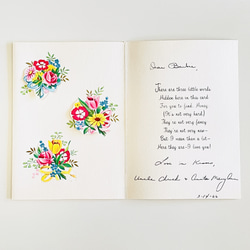 Dear
There are three little words
Hidden here in this card
For you to find, Honey
(It's not very hard)
They're not very fancy
They're not very new—
But I mean them a lot—
Here they are—I love you!
Love &
Uncle & Aunt